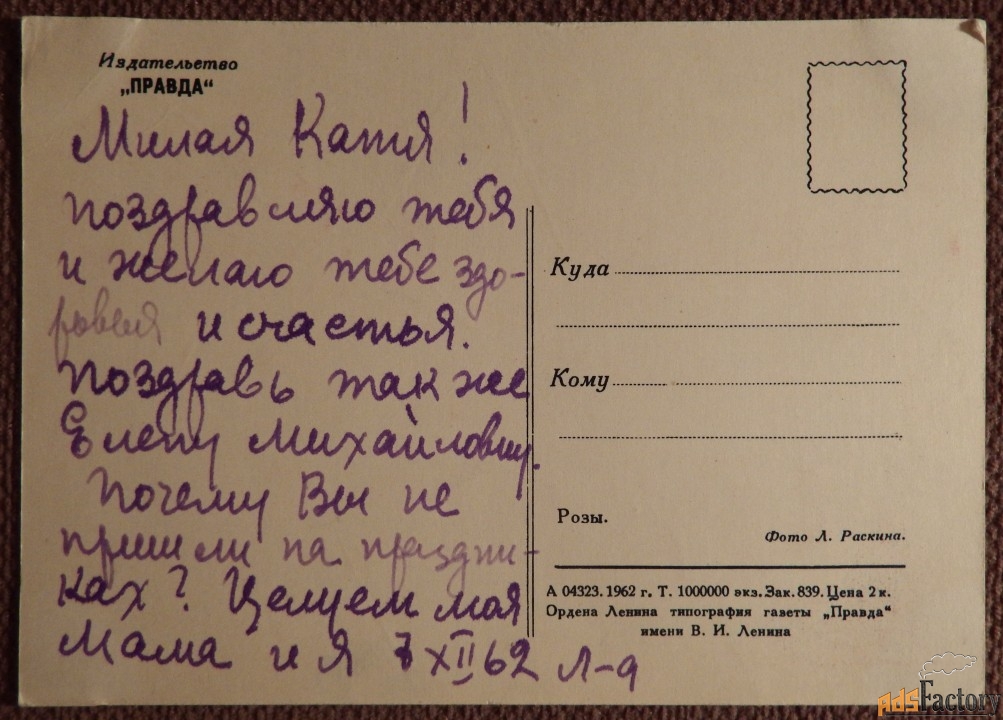 Издательство
„ПРАВДА“
Милая Катя!
поздравляю тебя
и желаю тебе здо-
ровья и счастья.
поздравь также
Елену Михайловну.
Почему Вы не
пришли на праздни-
ках? Целуем моя
мама и я 7 XII 62 Л-д
Куда
Кому
Розы.
Фото Л. Раскина.
А 04323. 1962 г. Т. 1000000 экз. Зак. 839. Цена 2 к.
Ордена Ленина типография газеты „Правда“
имени В. И. Ленина
AdsFactory